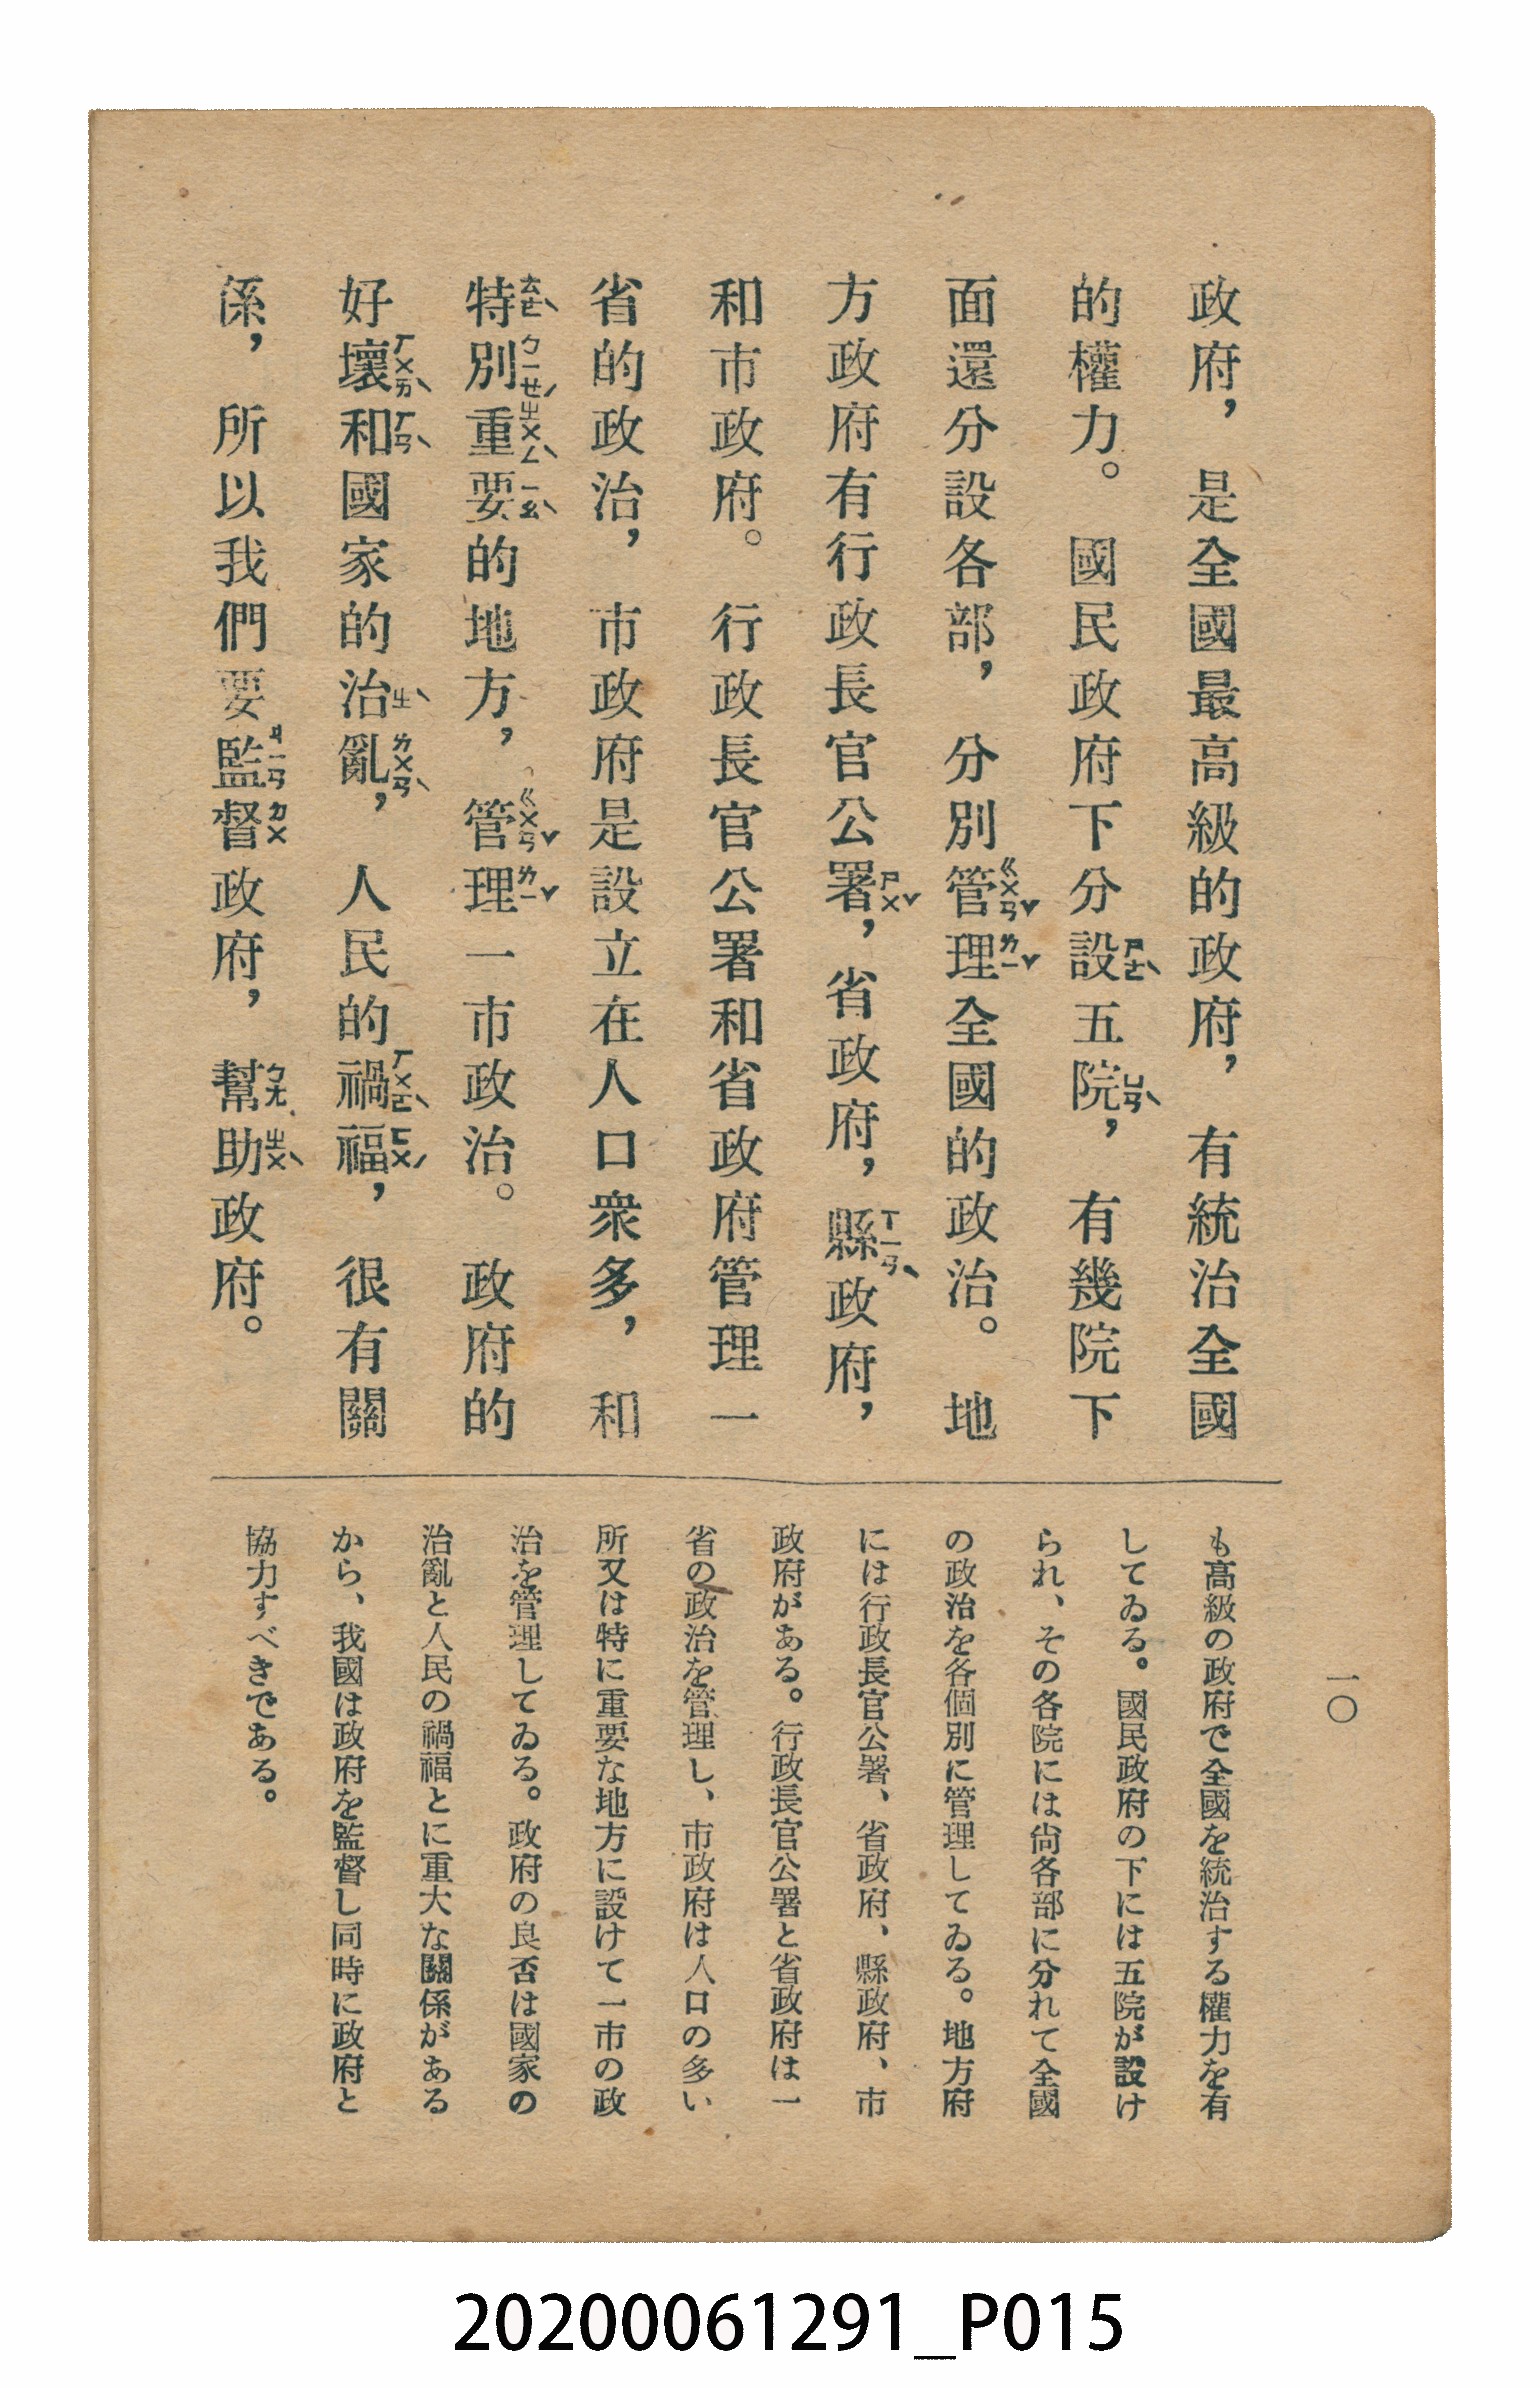 政府，是全國最高級的政府，有統治全國
的權力。國民政府下分設ㄕㄜˋ五院ㄩㄢˋ，有幾院下
面還分設各部，分別管ㄍㄨㄢˇ理ㄌㄧˇ全國的政治。地
方政府有行政長官公署ㄕㄨˇ，省政府，縣ㄒㄧㄢˋ政府，
和市政府。行政長官公署和省政府管理一
省的政治，市政府是設立在人口衆多，和
特ㄊㄜˋ別ㄅㄧㄝˊ重ㄓㄨㄥˋ要ㄧㄠˋ的地方，管ㄍㄨㄢˇ理ㄌㄧˇ一市政治。政府的
好壞ㄏㄨㄞˋ和ㄏㄢˋ國家的治ㄓˋ亂ㄌㄨㄢˋ，人民的禍ㄏㄨㄛˋ福ㄈㄨˊ，很有關
係，所以我們要監ㄐㄧㄢ督ㄉㄨ政府，幫ㄅㄤ助ㄓㄨˋ政府。
一〇
も高級の政府で全國を統治する權力を有
してゐる。國民政府の下には五院が設け
られ、その各院には尙各部に分れて全國
の政治を各個別に管理してゐる。地方府
には行政長官公署、省政府、縣政府、市
政府がある。行政長官公署と省政府は一
省の政治を管理し、市政府は人口の多い
所又は特に重要な地方に設けて一市の政
治を管理してゐる。政府の良否は國家の
治亂と人民の禍福とに重大な關係がある
から、我國は政府を監督し同時に政府と
協力すべきである。
20200061291_P015